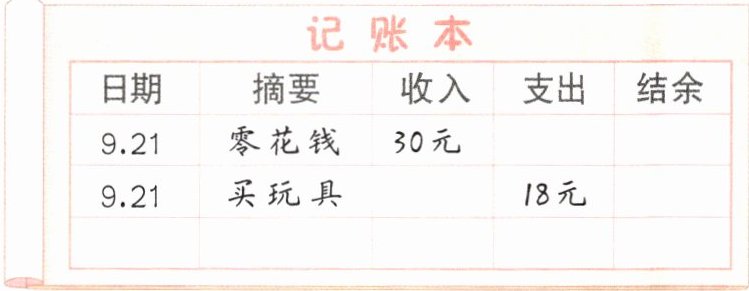 记账本
日期 摘要 收入 支出 结余
9.21 零花钱 30元
9.21 买玩具 18元